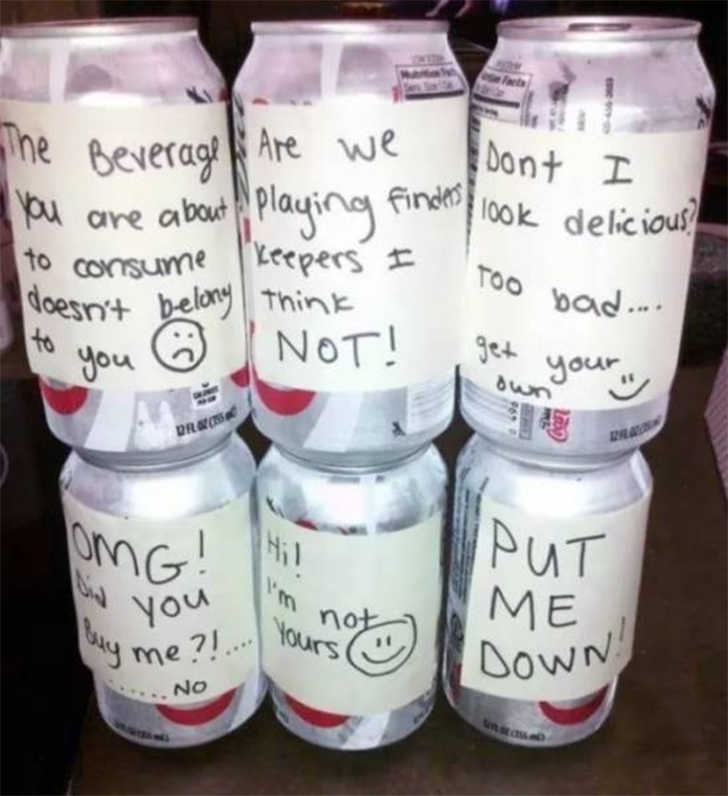 The Beverage
you are about
to consume
doesn't belong
to you
Are we
playing finders
keepers I
think
NOT!
Dont I
look delicious?
Too bad....
get your
own
OMG!
Did you
Buy me?!....
......NO
Hi!
I'm not
yours
PUT
ME
DOWN!
Nutrition Facts
12 FL OZ (355 mL)